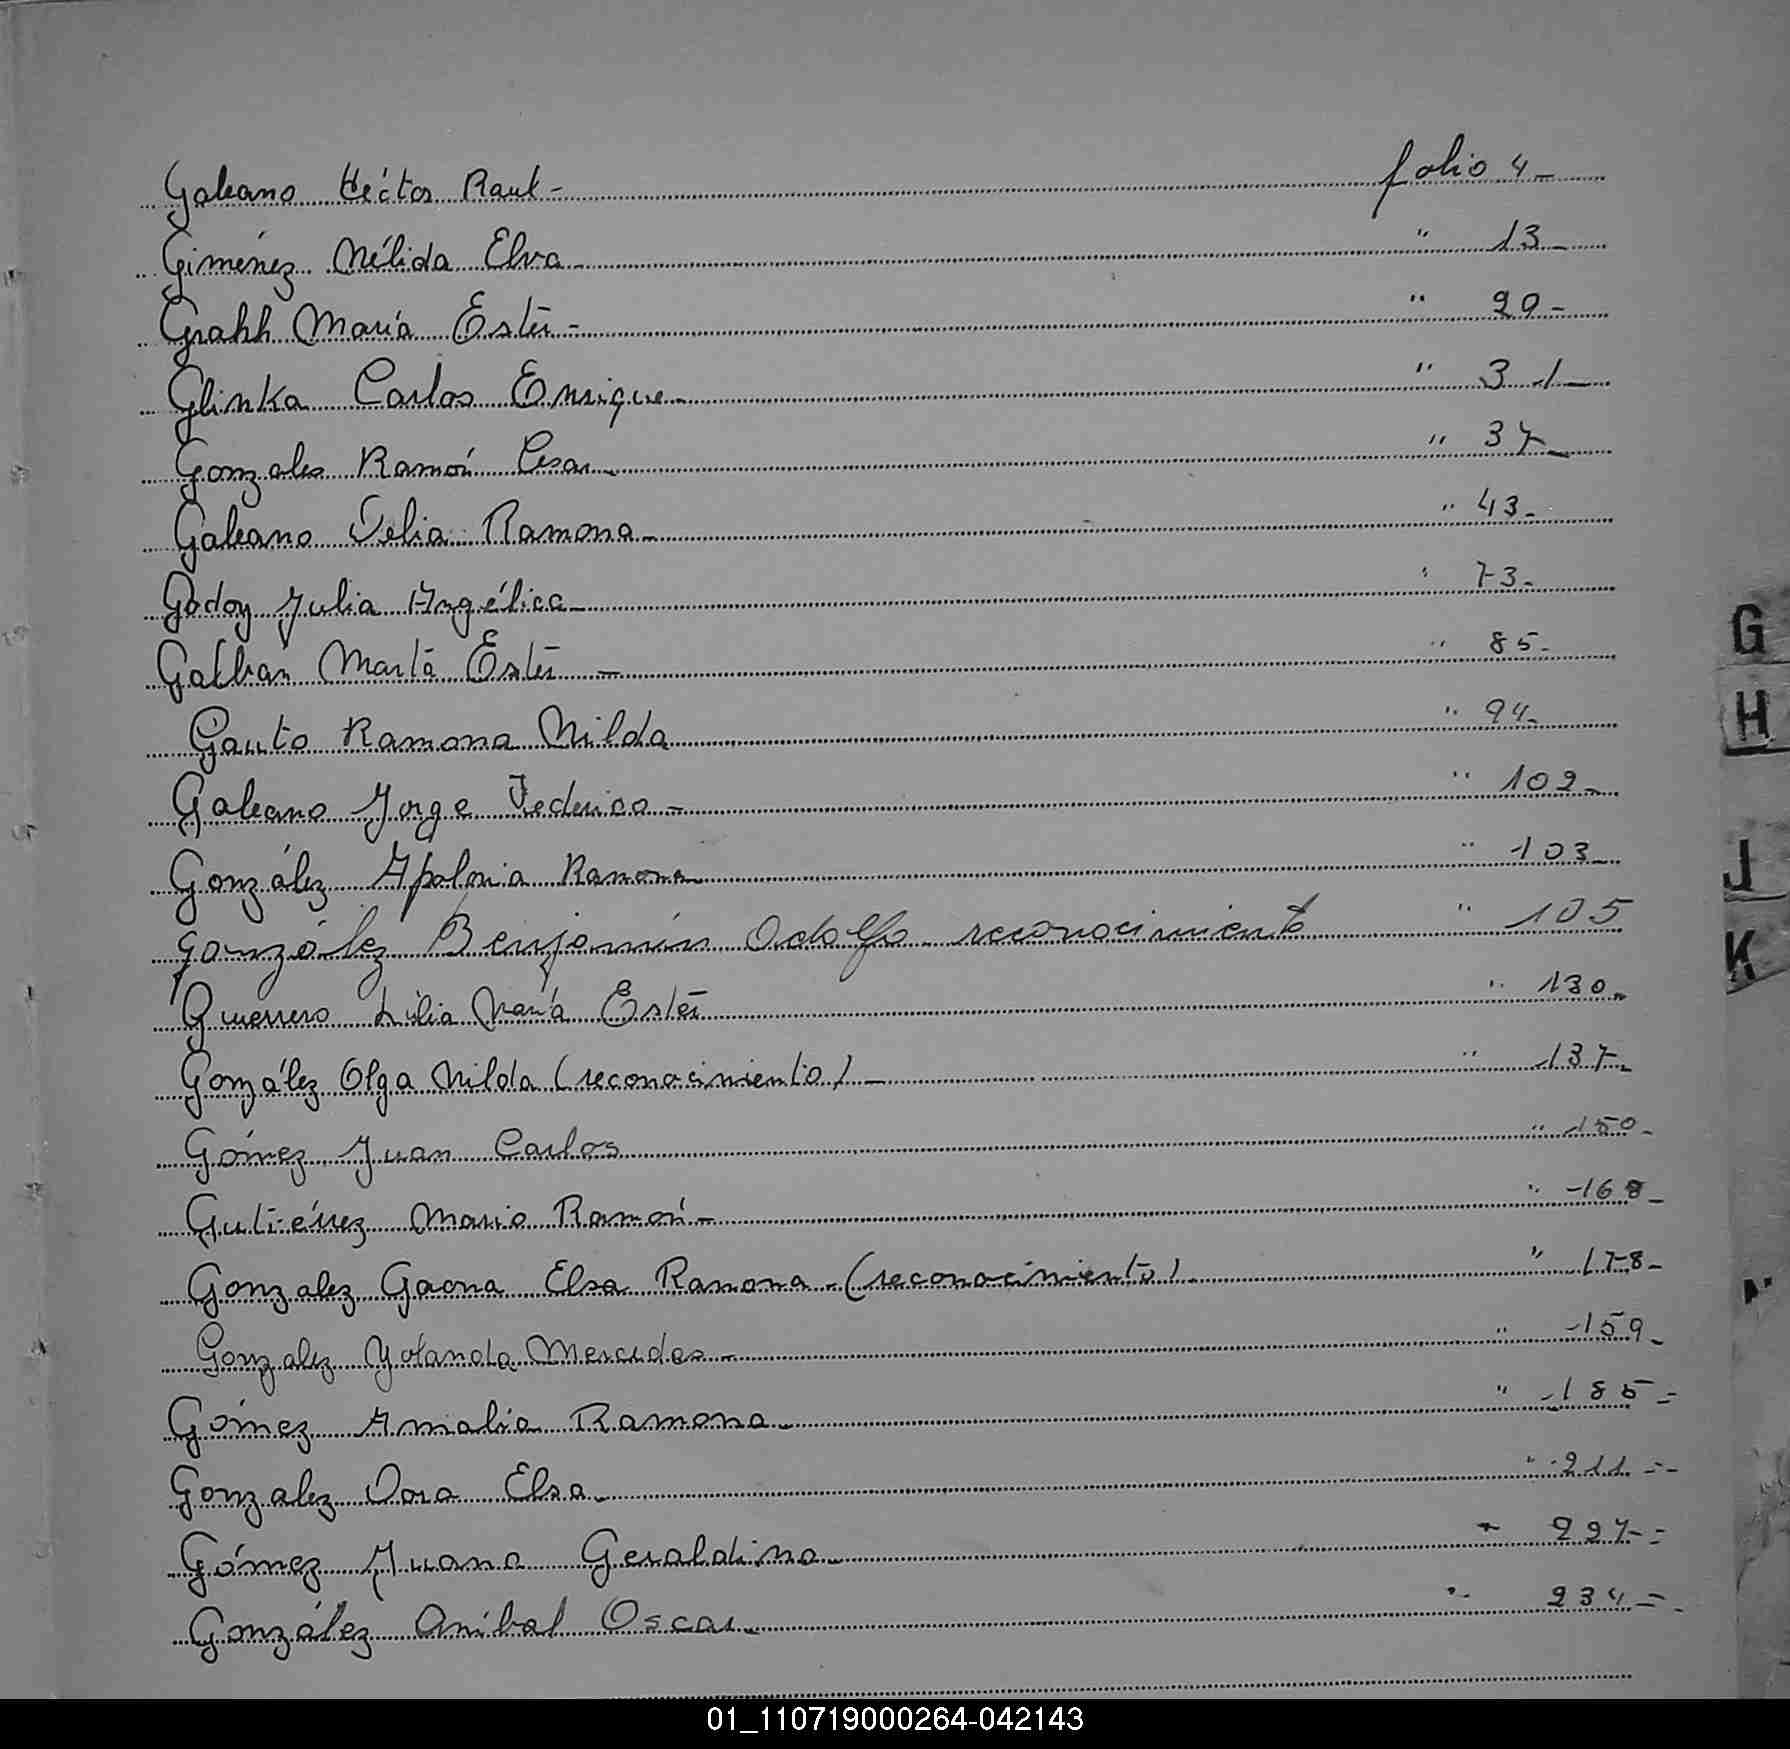 Galeano Héctor Raul - folio 4 -
Giménez Nélida Elva " 13 -
Grahh María Ester - " 20 -
Glinka Carlos Enrique - " 31 -
Gonzales Ramón Cesar - " 37 -
Galeano Delia Ramona - " 43 -
Godoy Julia Angélica - " 73 -
Galban Marta Ester - " 85 -
Gauto Ramona Nilda " 94 -
Galeano Jorge Federico - " 102 -
González Apolonia Ramona " 103 -
González Benjamín Odolfo reconocimiento " 105
Guerrero Lidia María Ester " 130 -
González Olga Nilda (reconocimiento) - " 137 -
Gómez Juan Carlos " 150 -
Gutiérrez Mario Ramón - " 168 -
Gonzalez Gaona Elsa Ramona - (reconocimiento) - " 178 -
Gonzalez Yolanda Mercedes - " 159 -
Gómez Amalia Ramona - " 185 =
Gonzalez Dora Elsa - " 211 =
Gómez Juana Geraldina - " 227 =
González Anibal Oscar - " 234 =
G
H
J
K
01_110719000264-042143